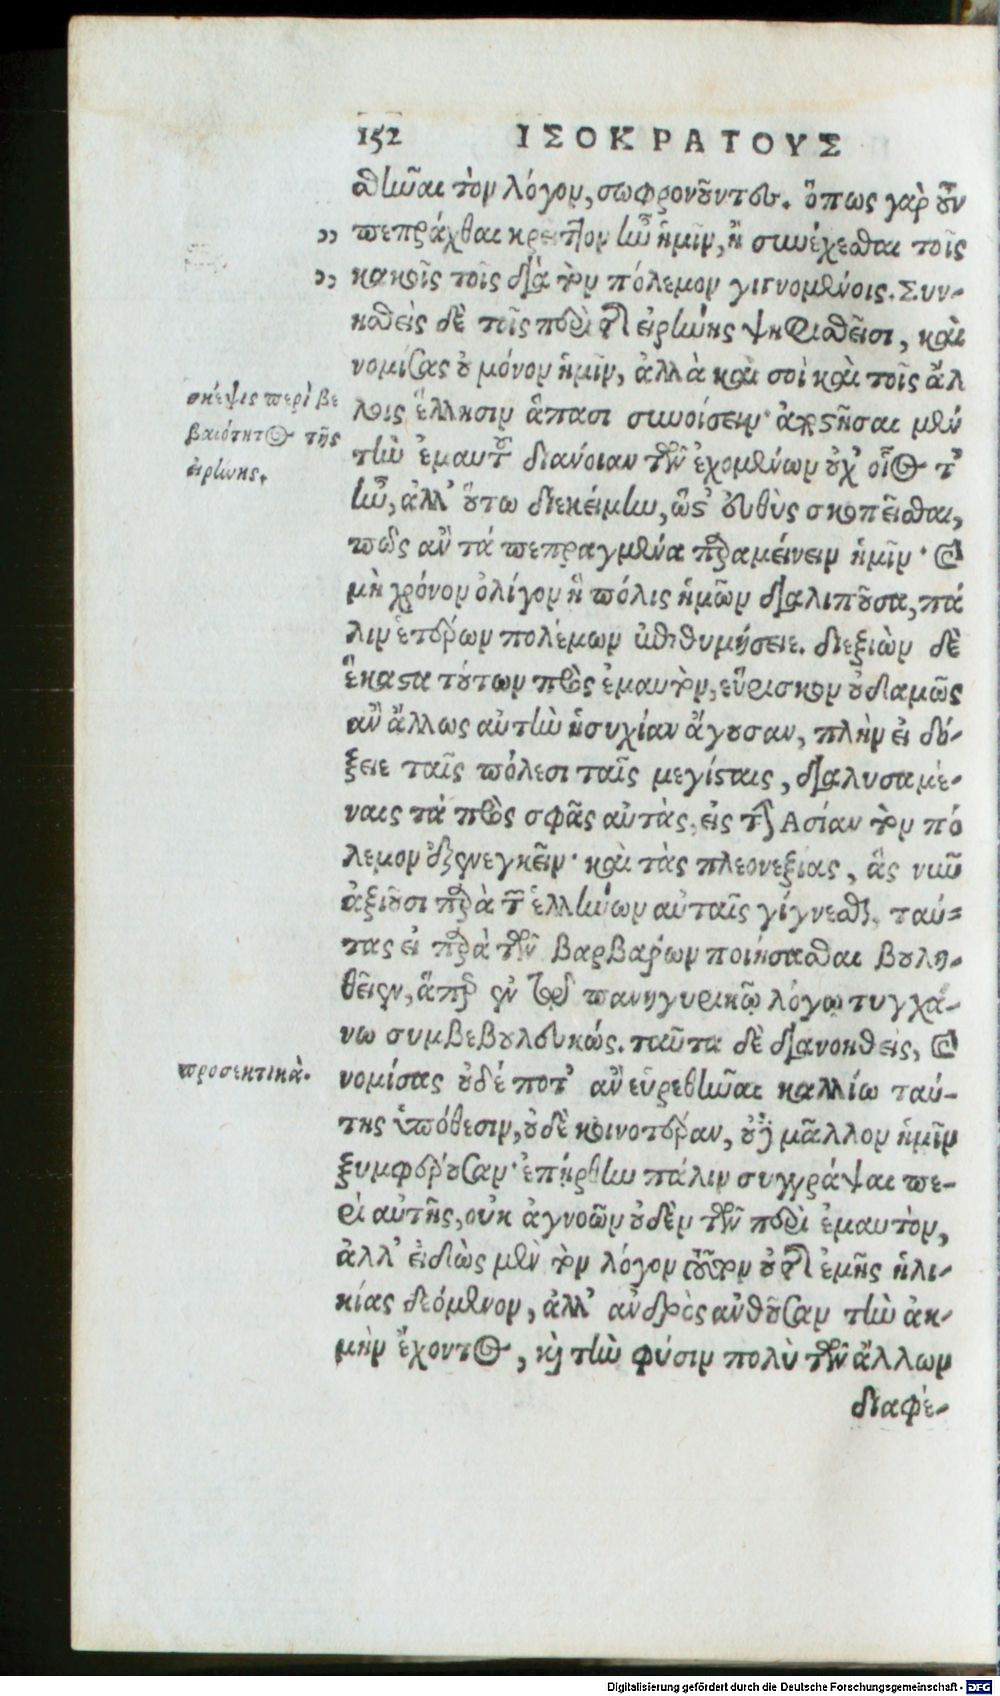 152 ΙΣΟΚΡΑΤΟΥΣ
σθῆναι τὸν λόγον, σωφρονοῦντες. ὅπως γὰρ οὖν
,, πεπράχθαι κρεῖττον ἦν ἡμῖν, ἢ συνέχεσθαι τοῖς
,, κακοῖς τοῖς διὰ τὸν πόλεμον γιγνομένοις. Συν-
ησθεὶς δὲ τοῖς περὶ τῆς εἰρήνης ψηφισθεῖσι, καὶ
νομίσας οὐ μόνον ἡμῖν, ἀλλὰ καὶ σοὶ καὶ τοῖς ἄλ
λοις ἕλλησιν ἅπασι συνοίσειν· ἀποστῆσαι μὲν
τὴν ἐμαυτοῦ διάνοιαν τῶν ἐχομένων οὐχ οἷός τ'
ἦν, ἀλλ' οὕτω διεκείμην, ὥστ' εὐθὺς σκοπεῖσθαι,
πῶς ἂν τὰ πεπραγμένα παραμείνειεν ἡμῖν· καὶ
μὴ χρόνον ὀλίγον ἡ πόλις ἡμῶν διαλιποῦσα, πά
λιν ἑτέρων πολέμων ἐπιθυμήσειε. διεξιὼν δὲ
ἕκαστα τούτων πρὸς ἐμαυτὸν, εὕρισκον οὐδαμῶς
ἂν ἄλλως αὐτὴν ἡσυχίαν ἄγουσαν, πλὴν εἰ δό-
ξειε ταῖς πόλεσι ταῖς μεγίσταις, διαλυσαμέ-
ναις τὰ πρὸς σφᾶς αὐτὰς, εἰς τὴν Ἀσίαν τὸν πό
λεμον ἐξενεγκεῖν· καὶ τὰς πλεονεξίας, ἃς νῦν
ἀξιοῦσι παρὰ τῶν ἑλλήνων αὐταῖς γίγνεσθαι, ταύ-
τας εἰ παρὰ τῶν βαρβάρων ποιήσασθαι βουλη-
θεῖεν, ἅπερ ἐν τῷ πανηγυρικῷ λόγῳ τυγχά-
νω συμβεβουλευκώς. ταῦτα δὲ διανοηθεὶς, καὶ
νομίσας οὐδέ ποτ' ἂν εὑρεθῆναι καλλίω ταύ-
της ὑπόθεσιν, οὐδὲ κοινοτέραν, οὐδὲ μᾶλλον ἡμῖν
ξυμφέρουσαν· ἐπήρθην πάλιν συγγράψαι πε-
ρὶ αὐτῆς, οὐκ ἀγνοῶν οὐδὲν τῶν περὶ ἐμαυτὸν,
ἀλλ' εἰδὼς μὲν τὸν λόγον τοῦτον οὐ τῆς ἐμῆς ἡλι-
κίας δεόμενον, ἀλλ' ἀνδρὸς ἀνθοῦσαν τὴν ἀκ-
μὴν ἔχοντος, καὶ τὴν φύσιν πολὺ τῶν ἄλλων
διαφέ-
σκέψις περὶ βε
βαιότητος τῆς
εἰρήνης.
προσεκτικά.
Digitalisierung gefördert durch die Deutsche Forschungsgemeinschaft - DFG